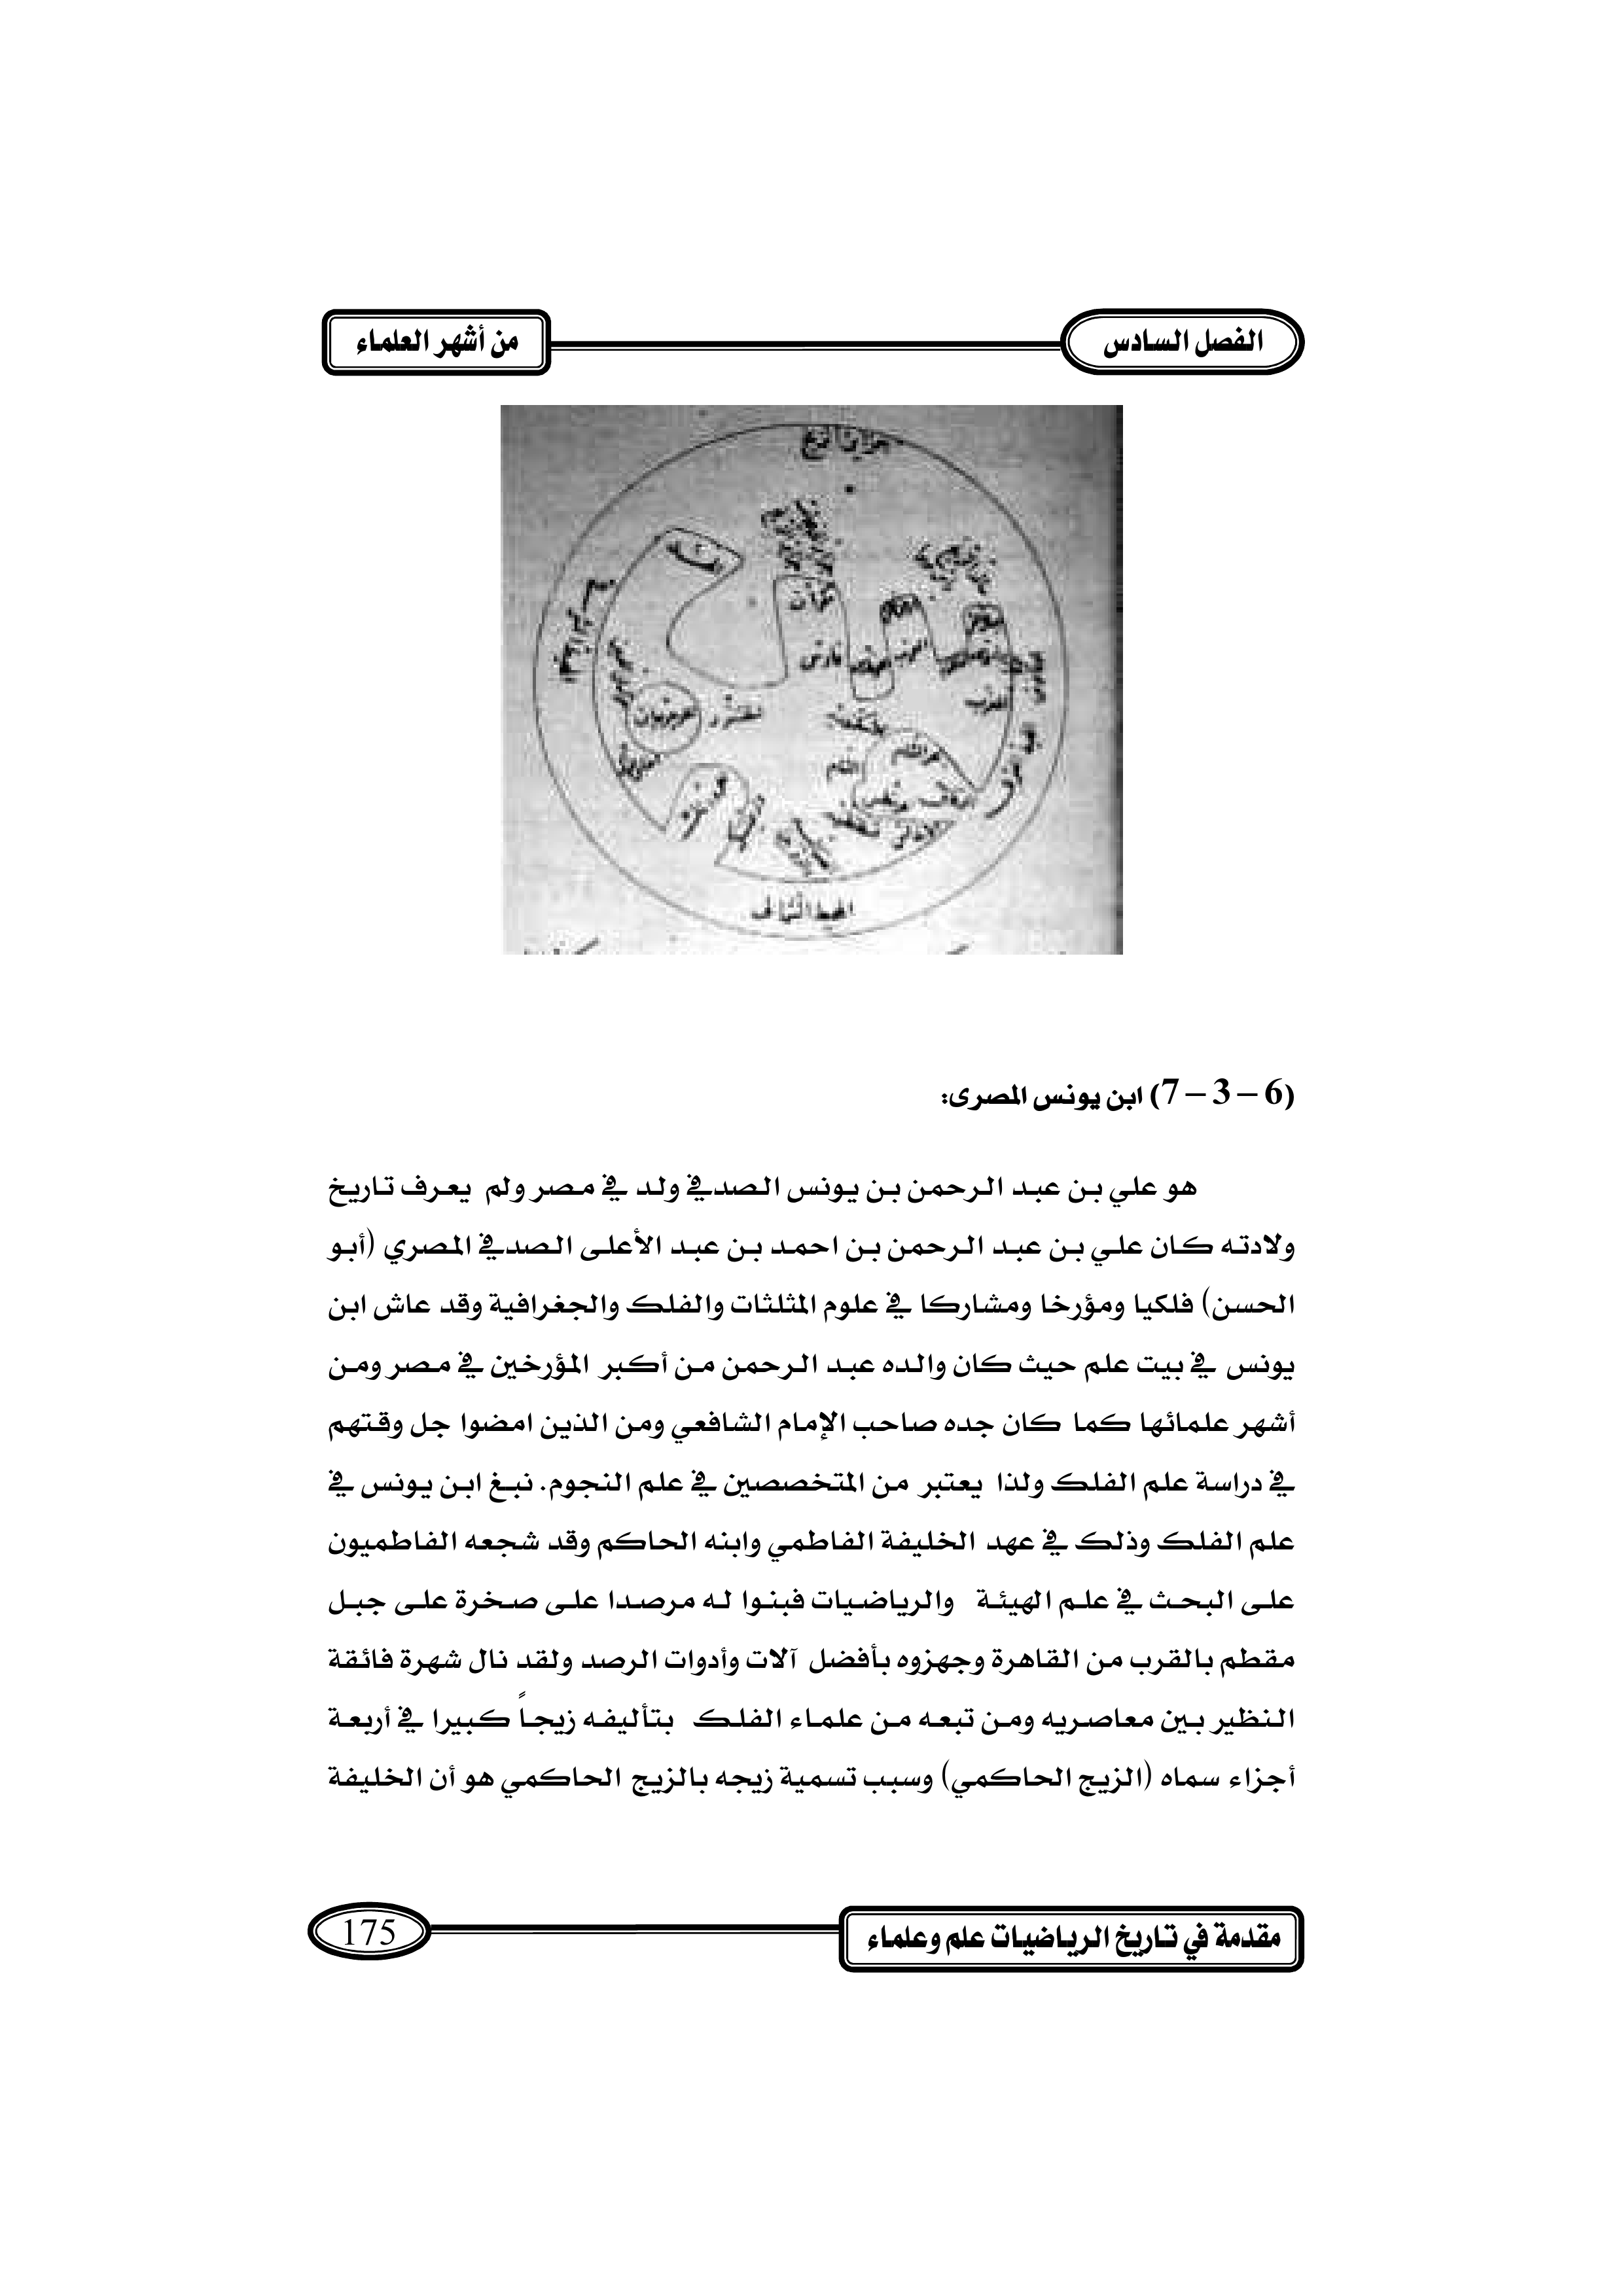 الفصل السادس
من أشهر العلماء
فارس
المحيط الشمالي
(6 – 3 – 7) ابن يونس المصرى:
هو علي بن عبد الرحمن بن يونس الصدفي ولد في مصر ولم يعرف تاريخ
ولادته كان علي بن عبد الرحمن بن احمد بن عبد الأعلى الصدفي المصري (أبو
الحسن) فلكيا ومؤرخا ومشاركا في علوم المثلثات والفلك والجغرافية وقد عاش ابن
يونس في بيت علم حيث كان والده عبد الرحمن من أكبر المؤرخين في مصر ومن
أشهر علمائها كما كان جده صاحب الإمام الشافعي ومن الذين امضوا جل وقتهم
في دراسة علم الفلك ولذا يعتبر من المتخصصين في علم النجوم. نبغ ابن يونس في
علم الفلك وذلك في عهد الخليفة الفاطمي وابنه الحاكم وقد شجعه الفاطميون
على البحث في علم الهيئة والرياضيات فبنوا له مرصدا على صخرة على جبل
مقطم بالقرب من القاهرة وجهزوه بأفضل آلات وأدوات الرصد ولقد نال شهرة فائقة
النظير بين معاصريه ومن تبعه من علماء الفلك بتأليفه زيجاً كبيرا في أربعة
أجزاء سماه (الزيج الحاكمي) وسبب تسمية زيجه بالزيج الحاكمي هو أن الخليفة
مقدمة في تاريخ الرياضيات علم وعلماء
175